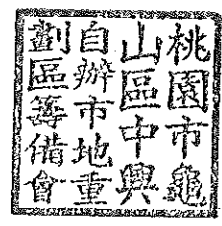 桃園市龜
山區中興
自辦市地重
劃區籌備會